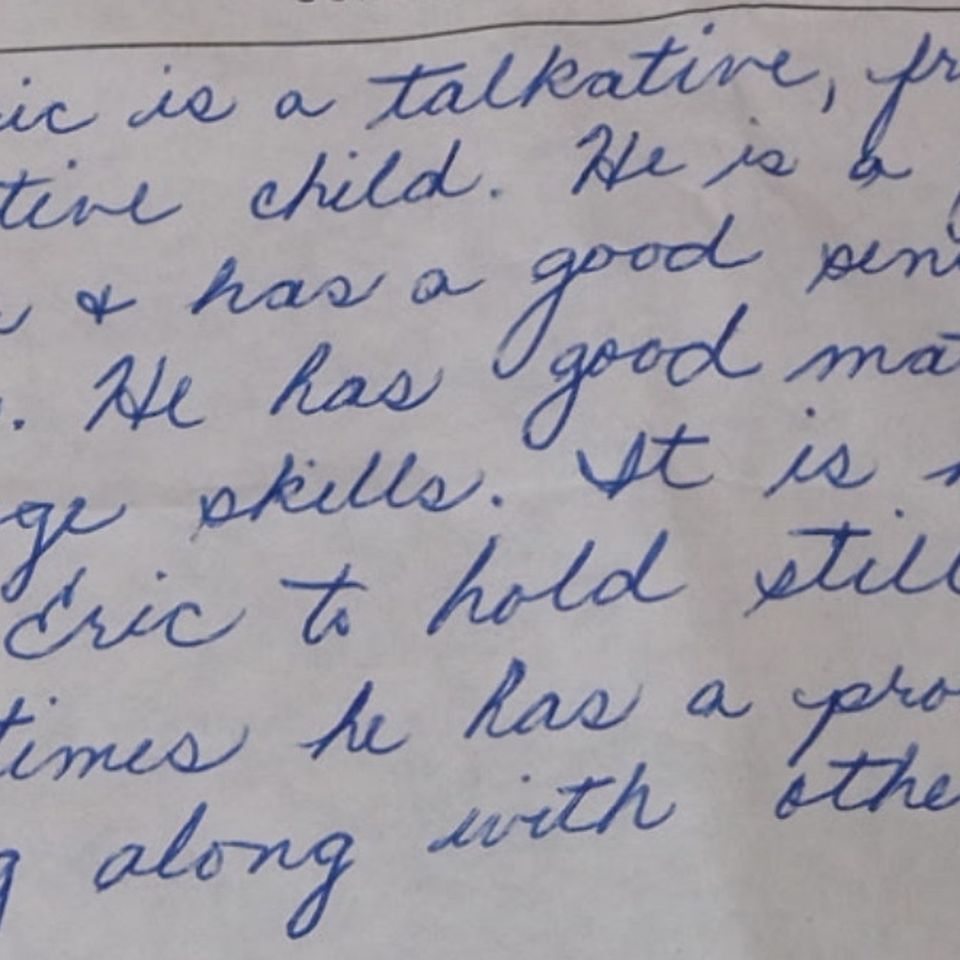 ic is a talkative, fr
tive child. He is a
& has a good sen
. He has good mat
ge skills. It is
Eric to hold still
times he has a pro
g along with othe